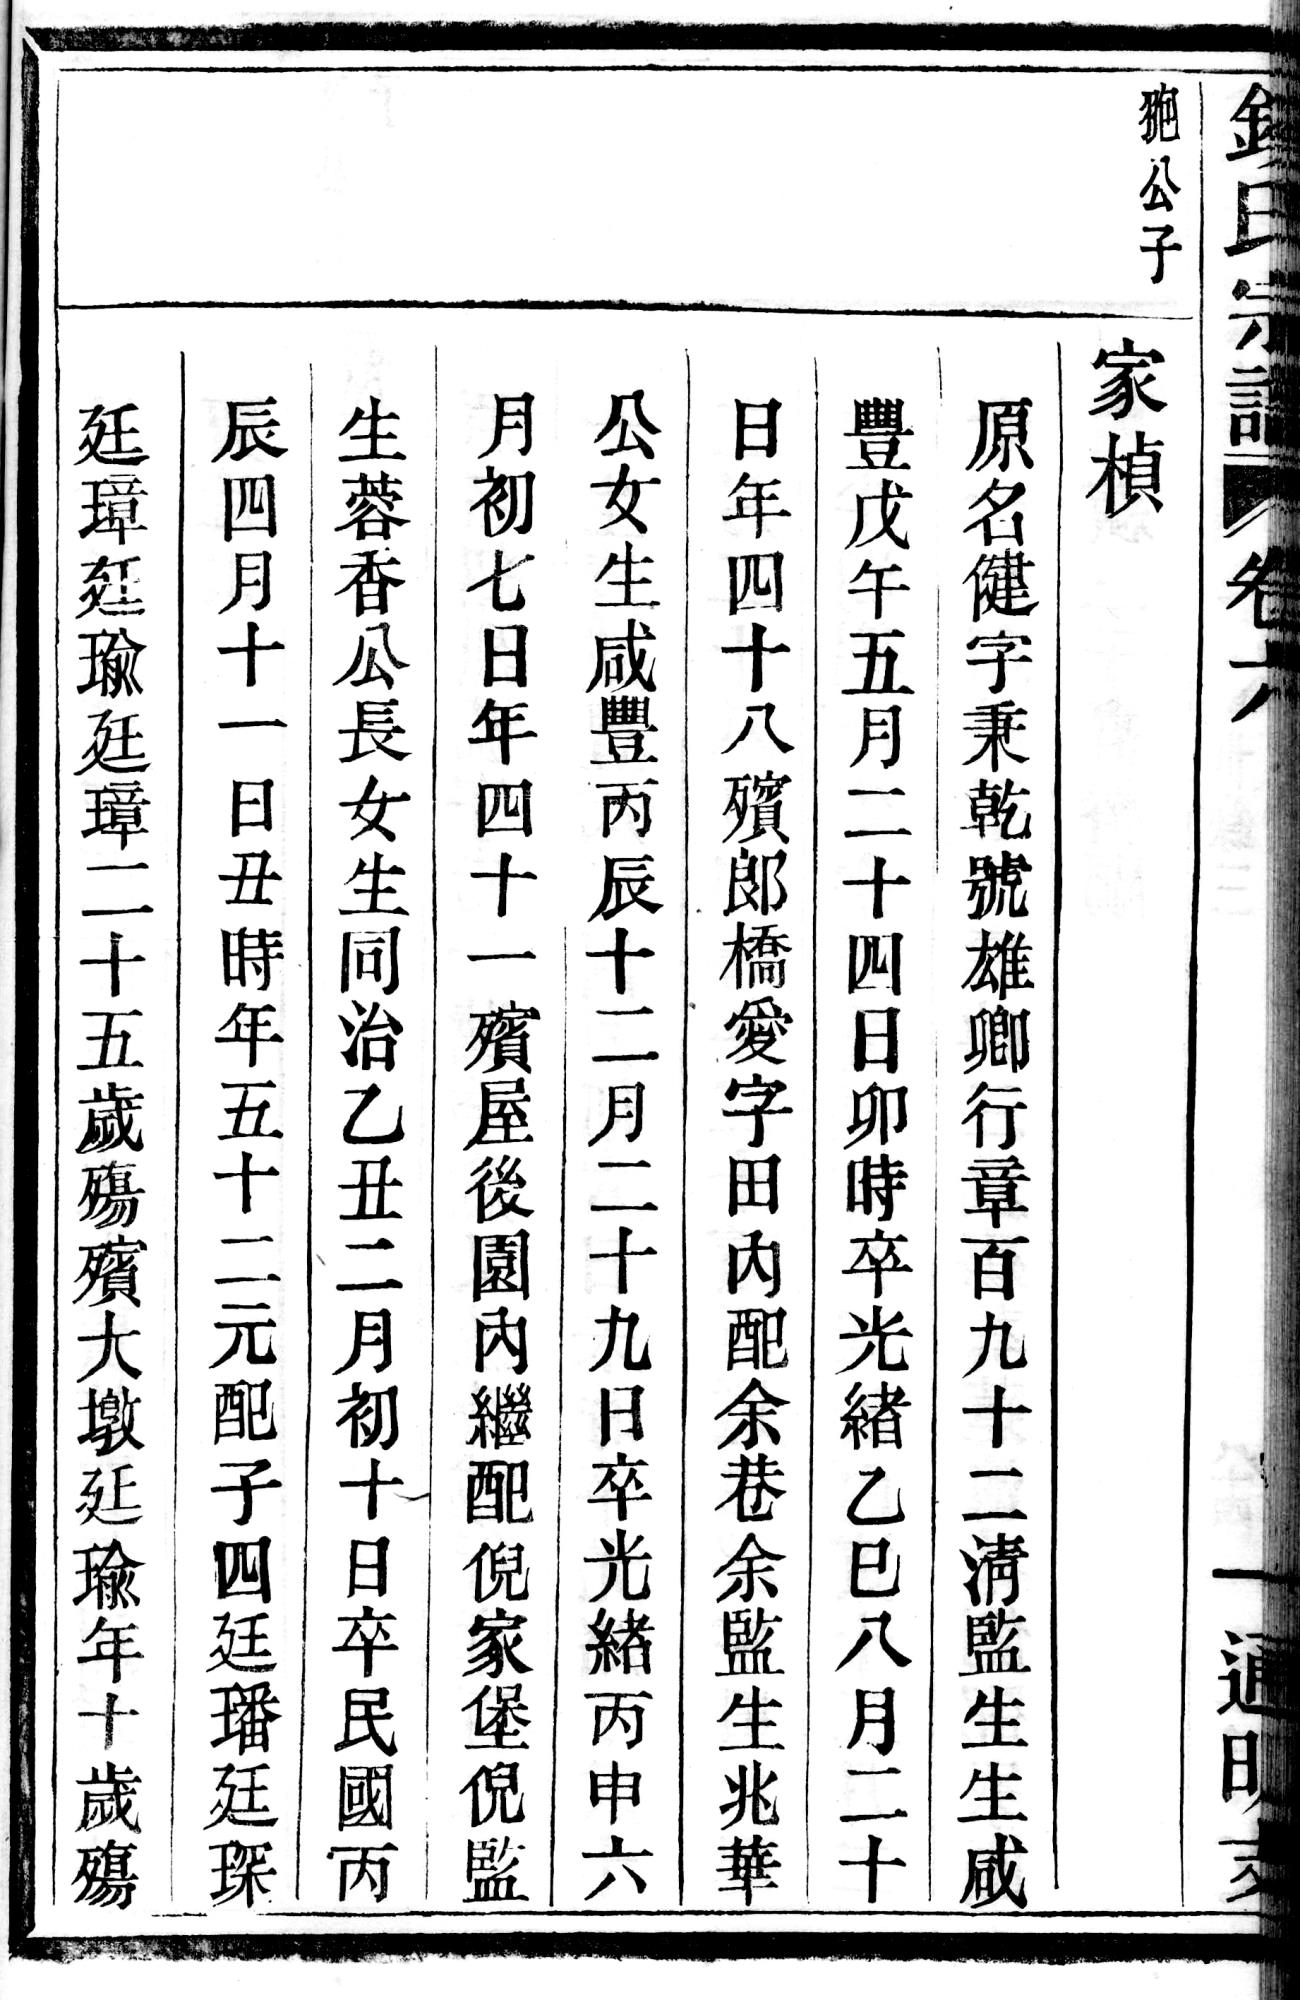 氏宗譜 卷六 一 通明支
公子
家楨
原名健字秉乾號雄卿行章百九十二清監生生咸
豐戊午五月二十四日卯時卒光緒乙巳八月二十
日年四十八殯郎橋愛字田內配余巷余監生兆華
公女生咸豐丙辰十二月二十九日卒光緒丙申六
月初七日年四十一殯屋後園內繼配倪家堡倪監
生蓉香公長女生同治乙丑二月初十日卒民國丙
辰四月十一日丑時年五十二元配子四廷璠廷琛
廷璋廷瑜廷璋二十五歲殤殯大墩廷瑜年十歲殤